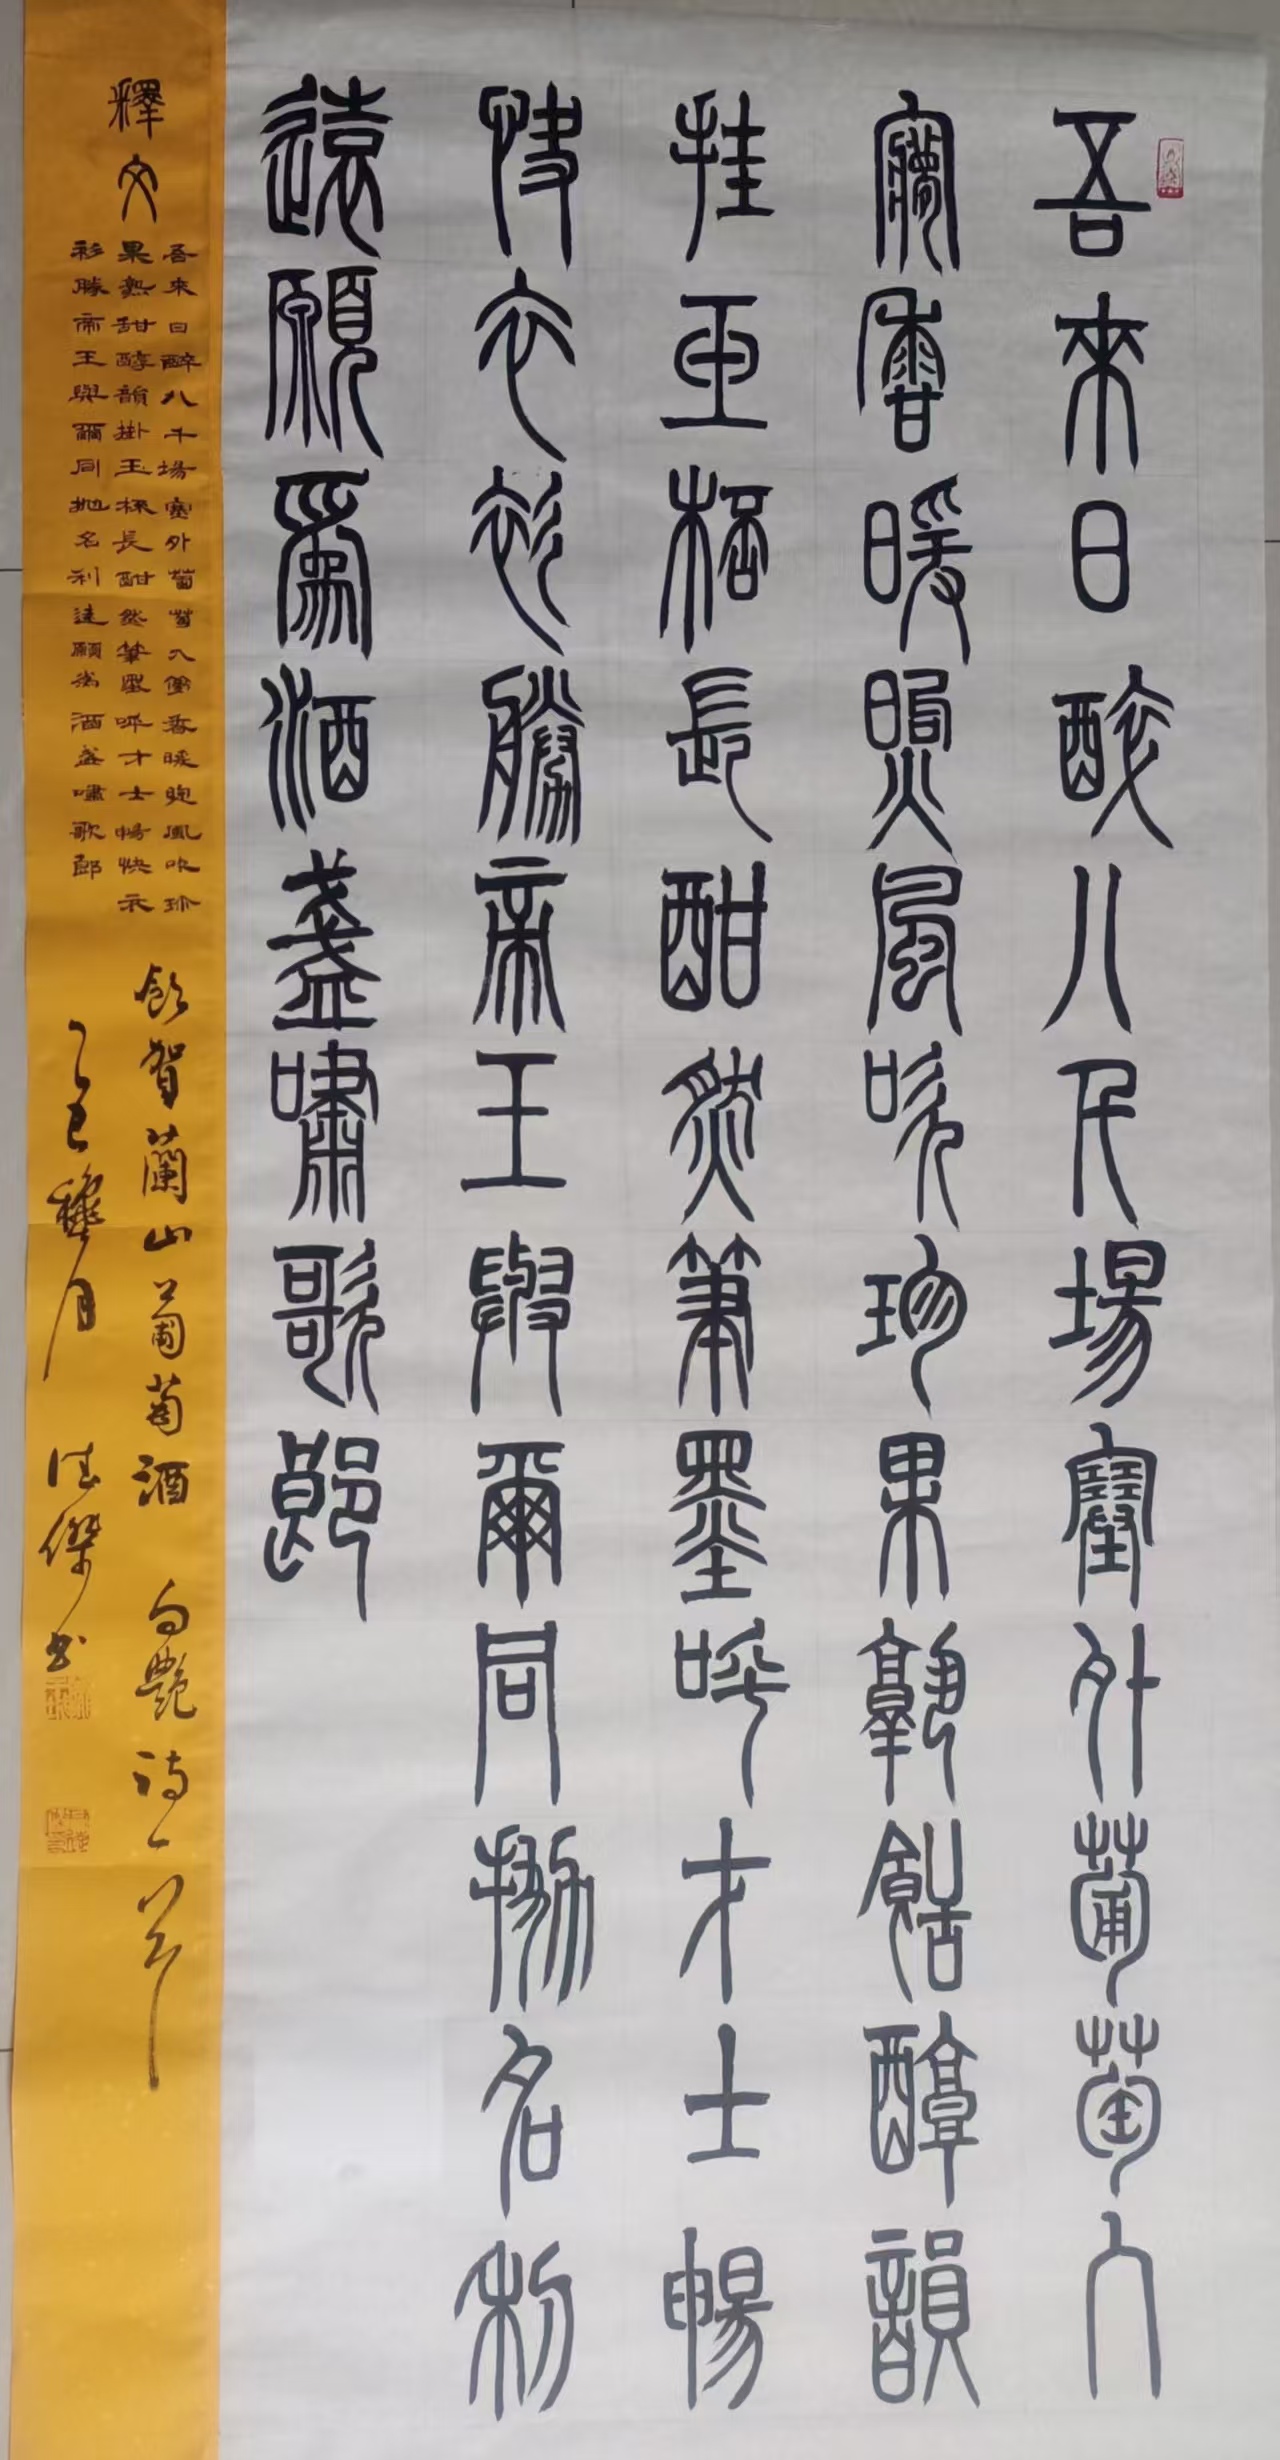 吾來日醉八千場塞外葡萄入
夢香暖煦風吹珍果熟甜醇韻
挂玉杯長酣然筆墨呼才士暢
快衣衫勝帝王與爾同拋名利
遠願為酒盞嘯歌郎
釋文
吾來日醉八千場塞外葡萄入夢香暖煦風吹珍
果熟甜醇韻掛玉杯長酣然筆墨呼才士暢快衣
衫勝帝王與爾同拋名利遠願為酒盞嘯歌郎
飲賀蘭山葡萄酒 白艷詩一首
乙巳穐月 傑書